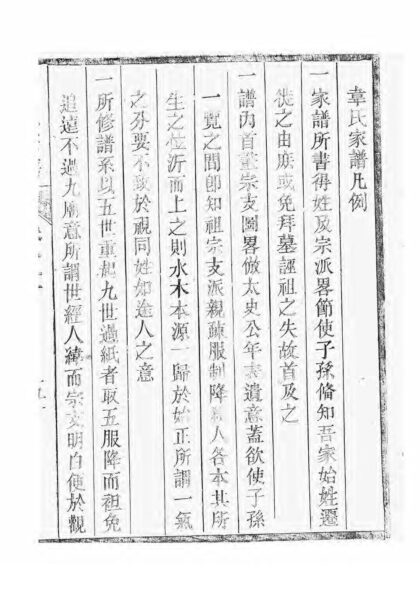 韋氏家譜凡例
一家譜所書得姓及宗派畧節使子孫脩知吾家始姓遷
徙之由庶或免拜墓誣祖之失故首及之
一譜內首 宗支圖畧倣太史公年表遺意蓋欲使子孫
一覽之間卽知祖宗支派親疎服制降 人各本其所
生之位泝而上之則水木本源一歸於始正所謂一氣
之分要不致於視同姓如途人之意
一所修譜系以五世重起九世過紙者取五服降而袒免
追遠不過九廟意所謂世經人緯而宗支明白便於觀